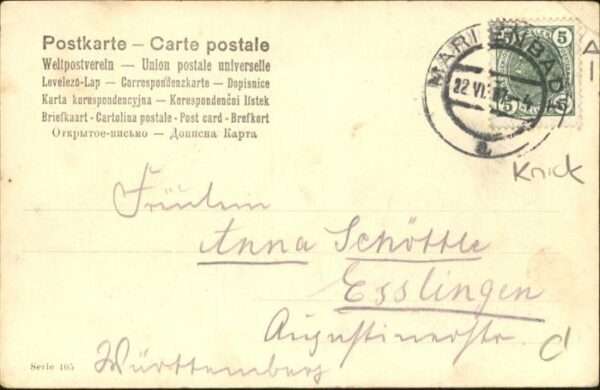 Postkarte – Carte postale
Weltpostverein – Union postale universelle
Levelező-Lap – Correspondenzkarte – Dopisnice
Karta korespondencyjna – Korespondenční lístek
Briefkaart - Cartolina postale - Post card - Brefkort
Открытое-письмо – Дописна Карта
5 5
5 5
MARIENBAD
22 VI
a
Knick
Fräulein
Anna Schöttle
Esslingen
Augustinerstr.
Württemberg
Serie 105